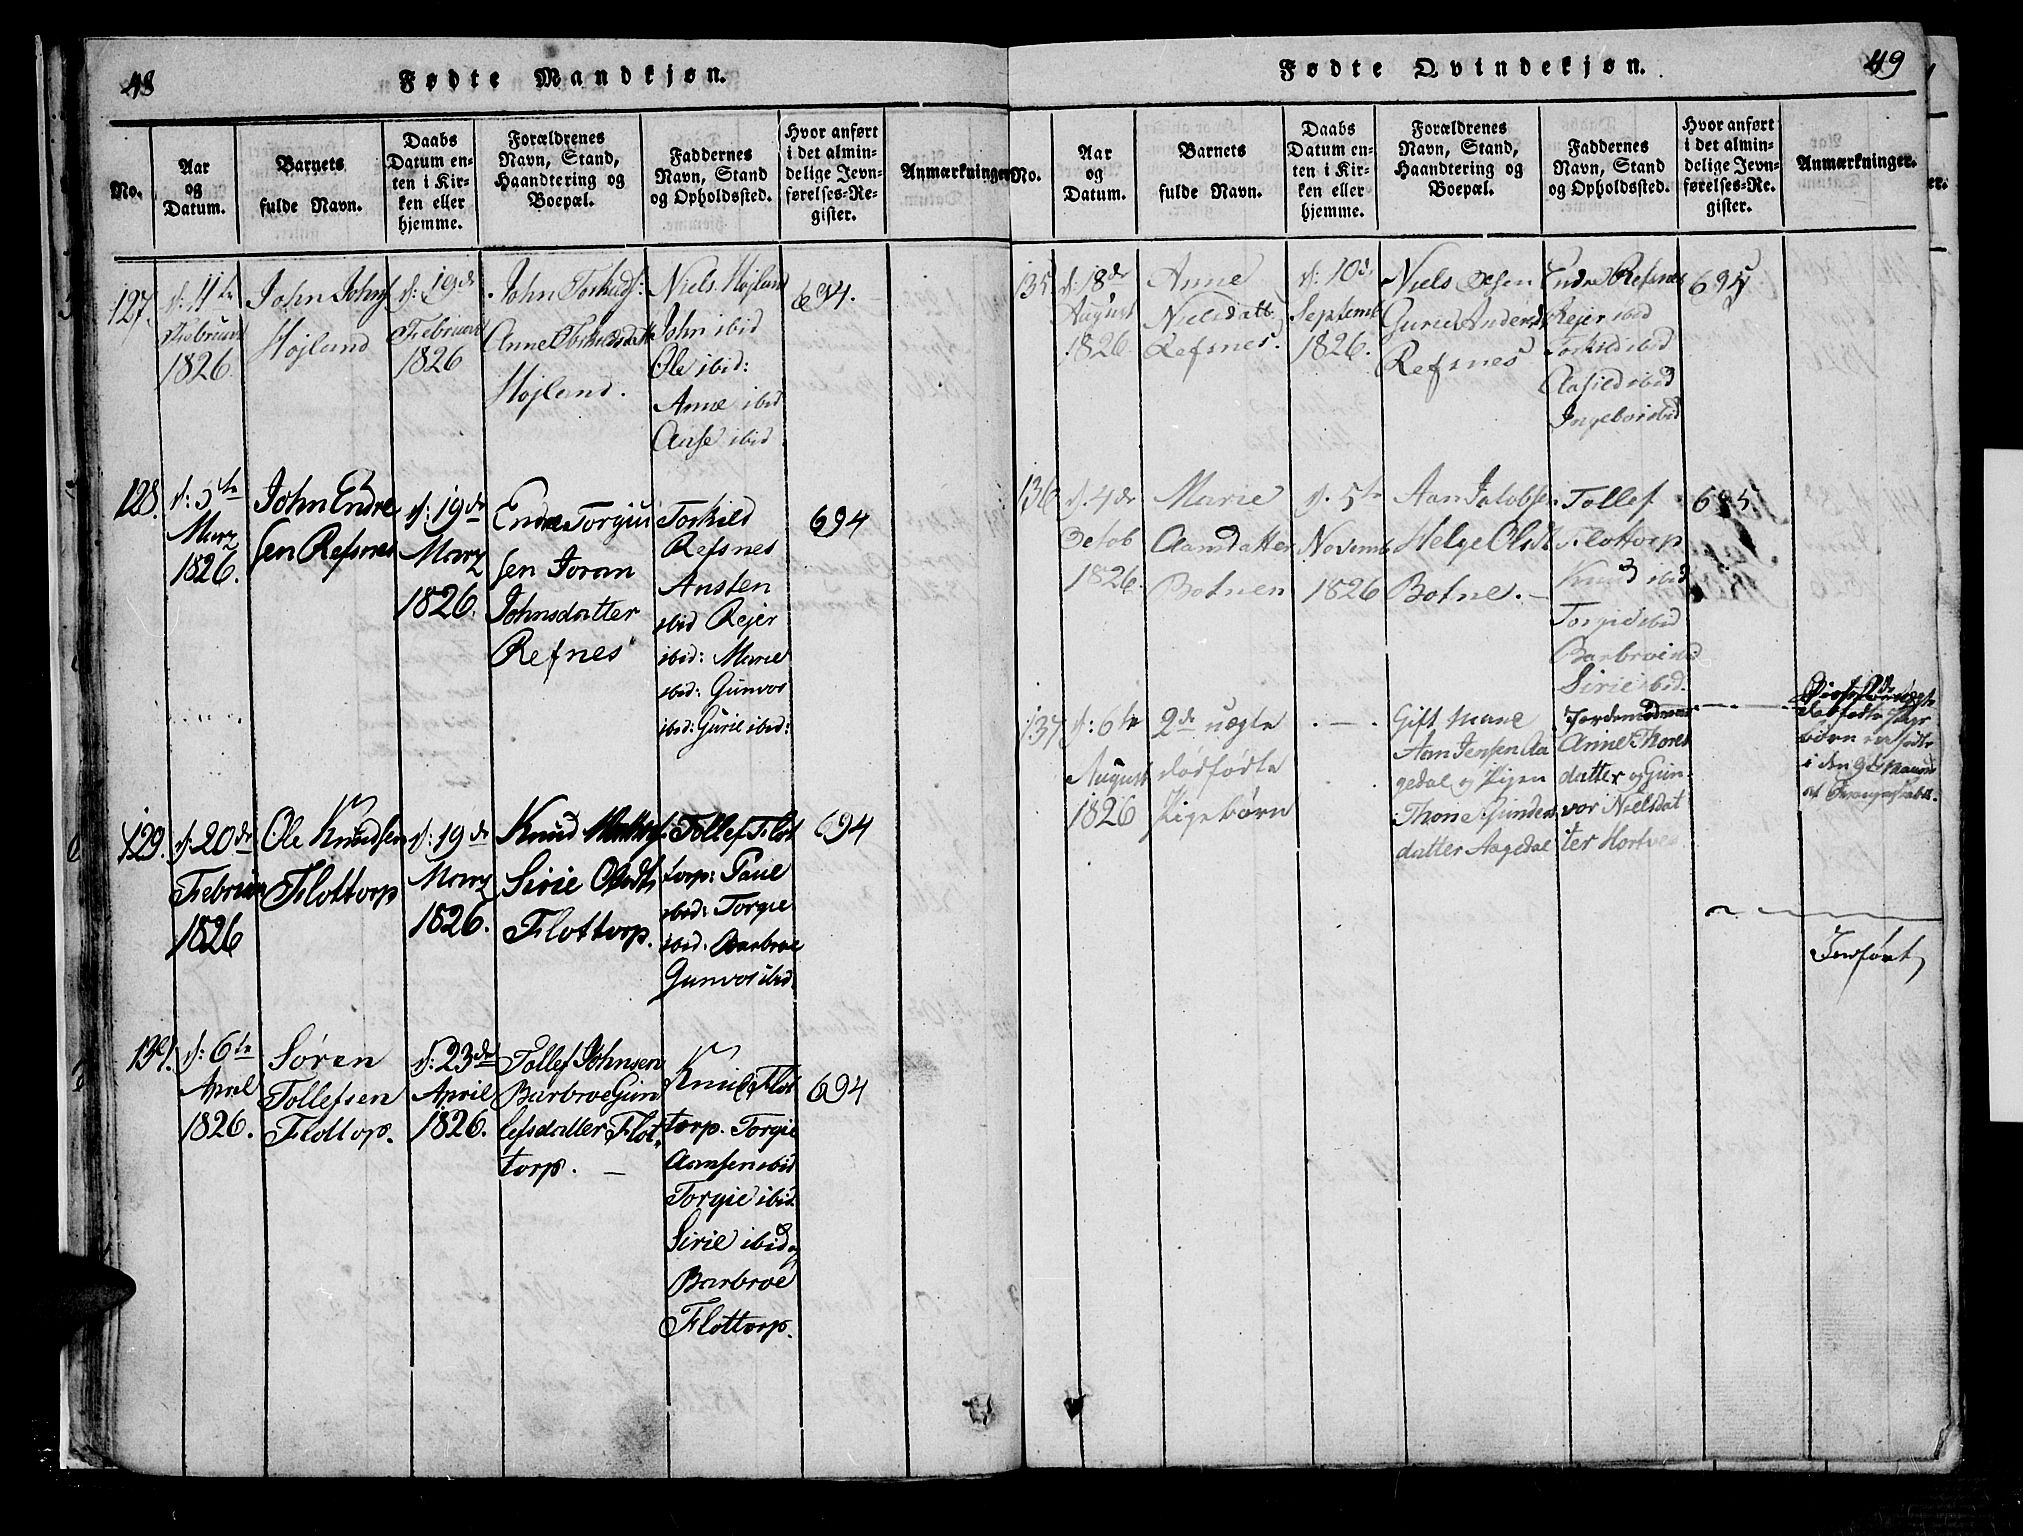 48
Fødte Mandkjøn.
No.
Aar
og
Datum.
Barnets
fulde Navn.
Daabs
Datum en-
ten i Kir-
ken eller
hjemme.
Forældrenes
Navn, Stand,
Haandtering og
Boepæl.
Faddernes
Navn, Stand
og Opholdssted.
Hvor anført
i det almin-
delige Jevn-
førelses-Re-
gister.
Anmærkninger
127.
d: 11te
Februar
1826.
John Johns
Højland
d: 19de
Februar
1826
John Torkilds:
Anne Torkildsdatt
Højland.
Niels Højland
John ibid
Ole ibid:
Anne ibid
Aase ibid
694.
128.
d: 5te
Marz
1826.
John Endre
sen Refsnes
d: 19de
Marz
1826.
Endre Torgius
sen Joran
Johnsdatter
Refnes
Torkild
Refsnes
Ansten
ibid Rejer
ibid: Marie
ibid: Gunvor
ibid: Gurie ibid:
694
129.
d: 20de
Februar
1826
Ole Knudsen
Flottorp
d: 19de
Marz
1826.
Knud
Sirie Olsdt
Flottorp.
Tollef Flot
torp: Paul
ibid: Torgie
ibid: Barbroe
Gunvor ibid.
694
d: 6te
April
1826.
Søren
Tollefsen
Flottorp.
d: 23de
April
1826.
Tollef Johnsen
Barbroe Gun
lefsdatter Flot
torp. —
Knud Flot
torp. Torgie
Aansen ibid
Torgie ibid
Sirie ibid og
Barbroe
Flottorp.
694
49
Fødte Qvindekjøn.
No.
Aar
og
Datum.
Barnets
fulde Navn.
Daabs
Datum en-
ten i Kir-
ken eller
hjemme.
Forældrenes
Navn, Stand,
Haandtering og
Boepæl.
Faddernes
Navn, Stand
og Opholdssted.
Hvor anført
i det almin-
delige Jevn-
førelses-Re-
gister.
Anmærkninger.
135
d: 18de
August
1826.
Anne
Nielsdatt
Refsnes.
d: 10de
Septemb
1826.
Niels Olsen
Gurie Andersd
Refsnes
Endre Refsnes
Rejer ibid
Torkild ibid
Aasild ibid
Ingebor ibid
695
136
d. 4de
Octob
1826.
Marie
Aansdatter
Botnen
d. 5te
Novemb
1826
Aan Jacobsen
Helge Olsdt
Botne. —
Tollef
Flottorp
Knud ibid
Torgie ibid
Barbroe ibid
Sirie ibid.
695
137
d: 6te
August
1826
2de uægte
dødfødte
Pigebørn
. — .
Gift Mand
Aan Jensen Aa
gedal og Pigen
Thone Gunders
datter Aagedal
Jordemødrene
Anne Thores
datter og Gun
vor Nielsdat
ter Hortve
dødfødte Pige
børn er fødte
i den 9de Maaned
Indført